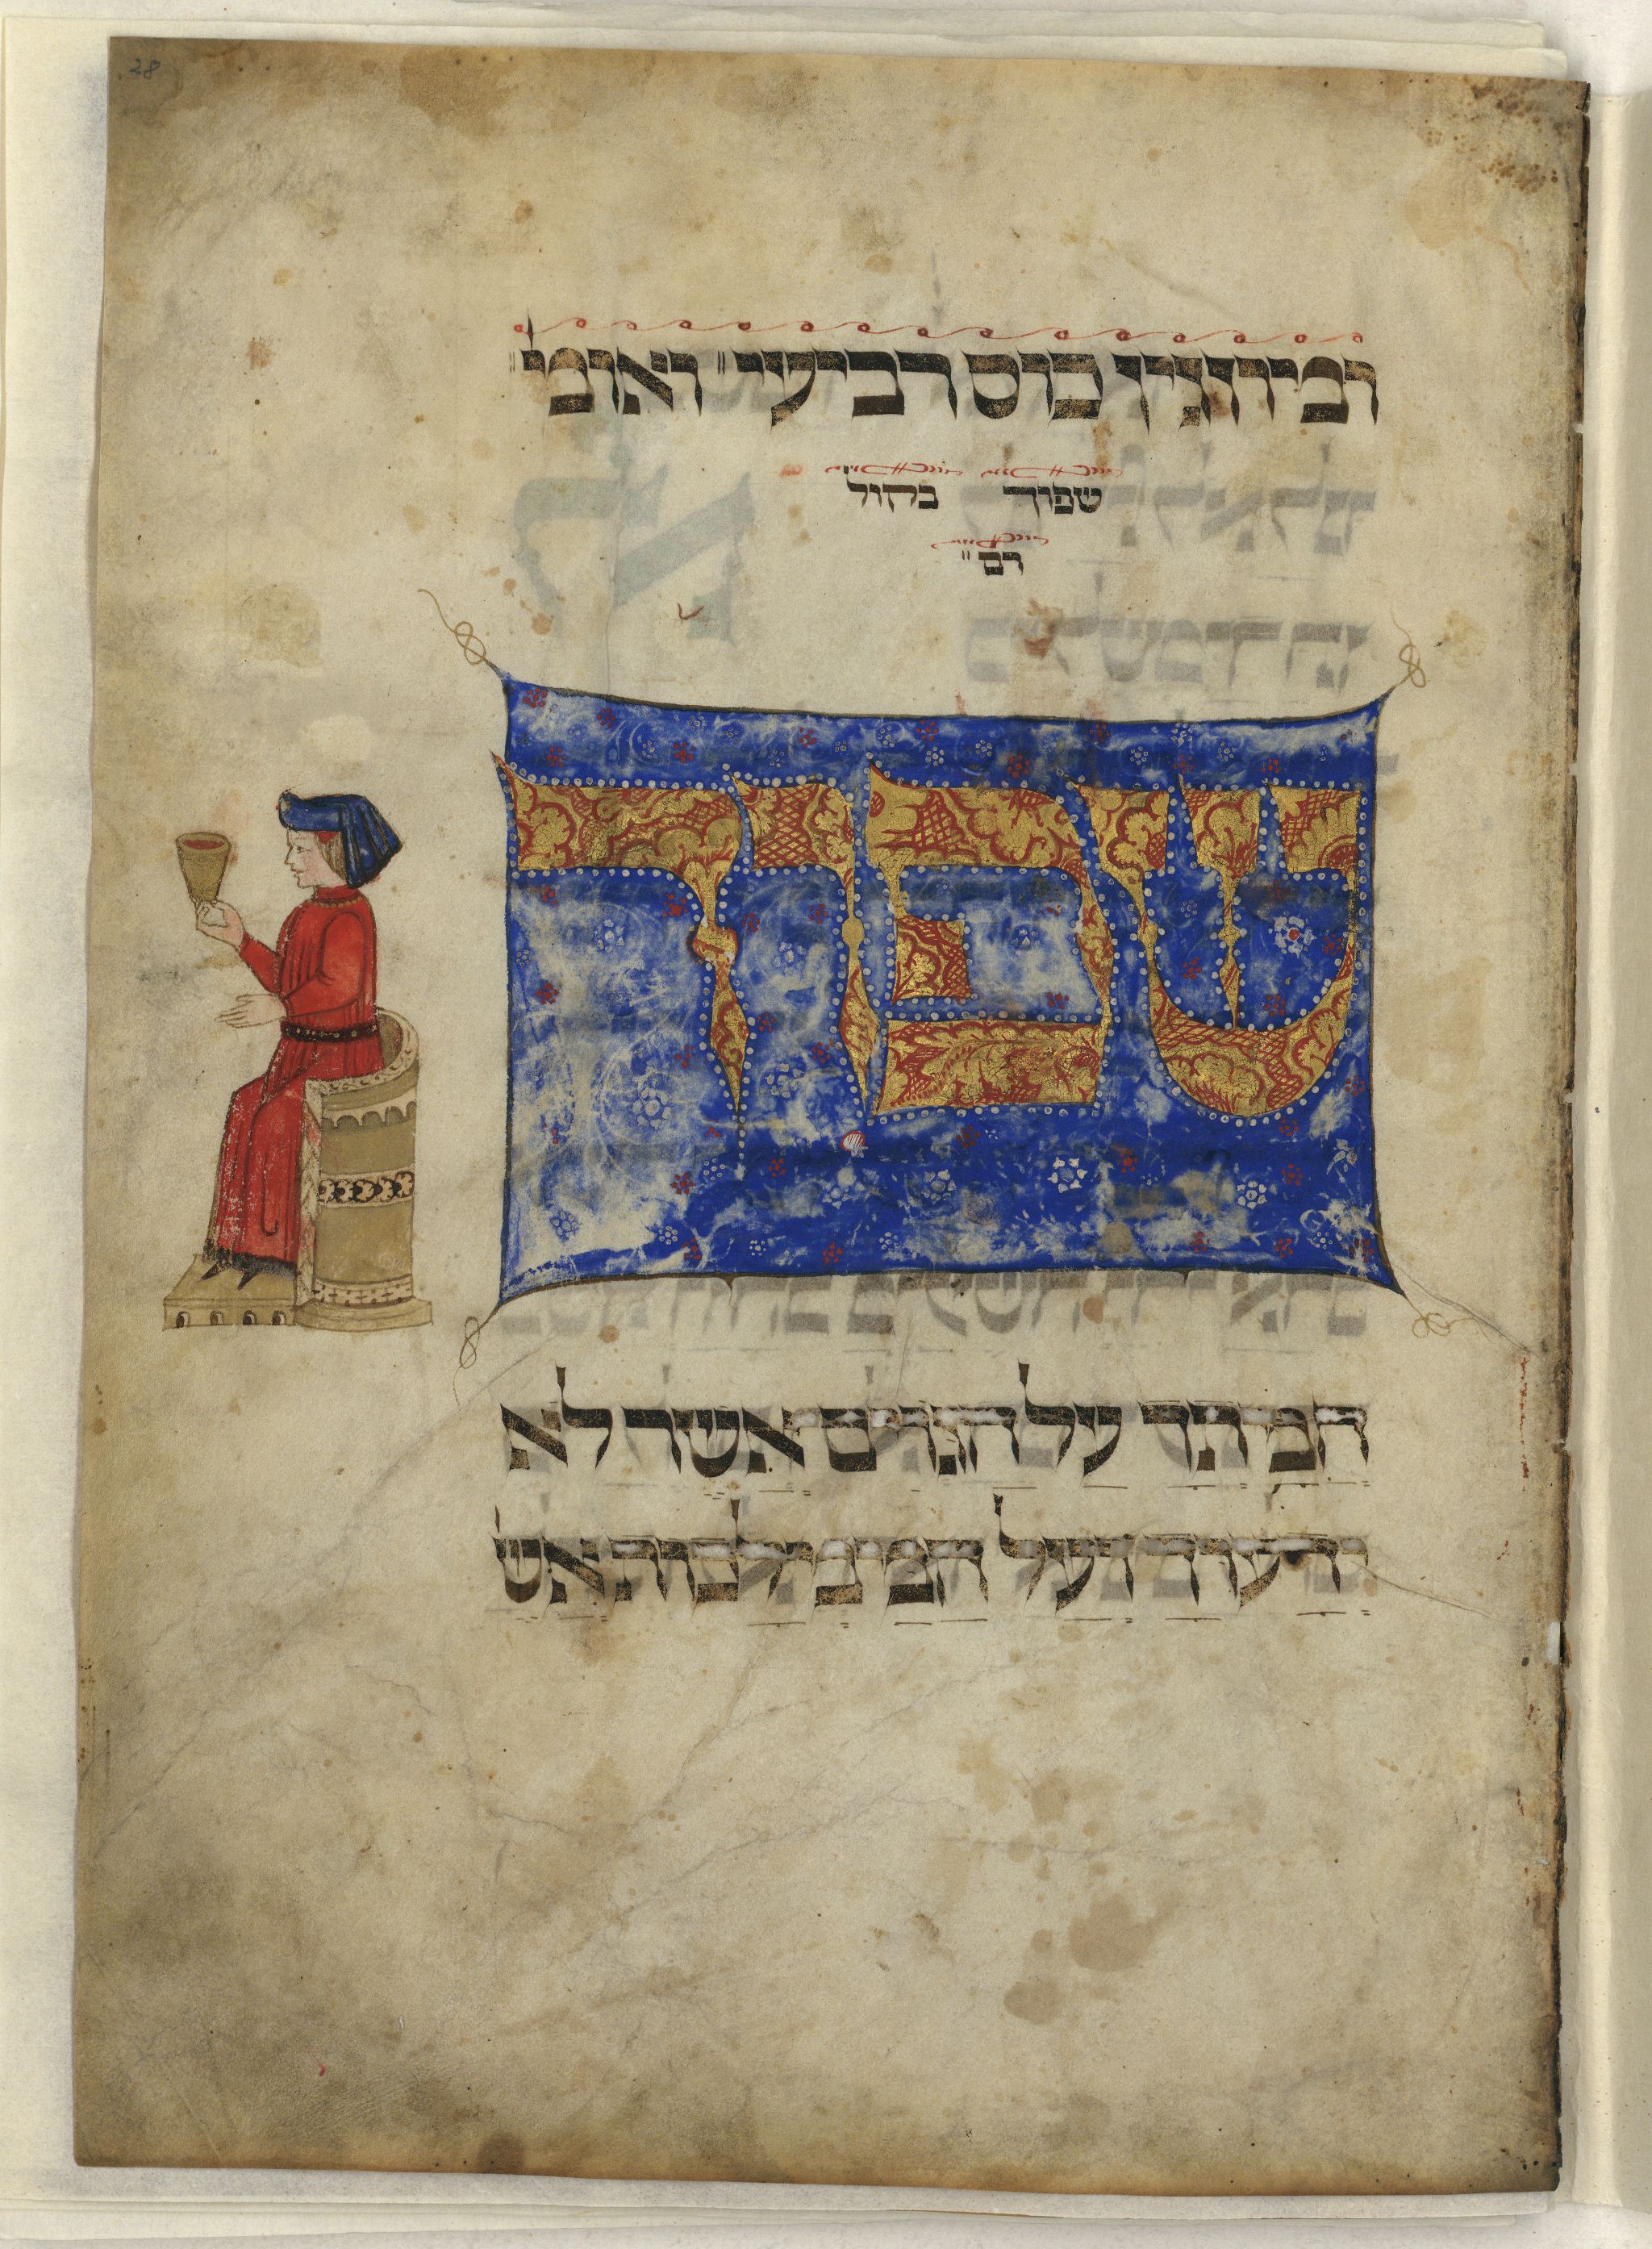 28
ומיוזגין כוס רביעי״ ואומ׳״
שפוך בקול
רם״
שפוך
חמתך על הגוים אשר לא
ידעוך ועל הממלכות אש